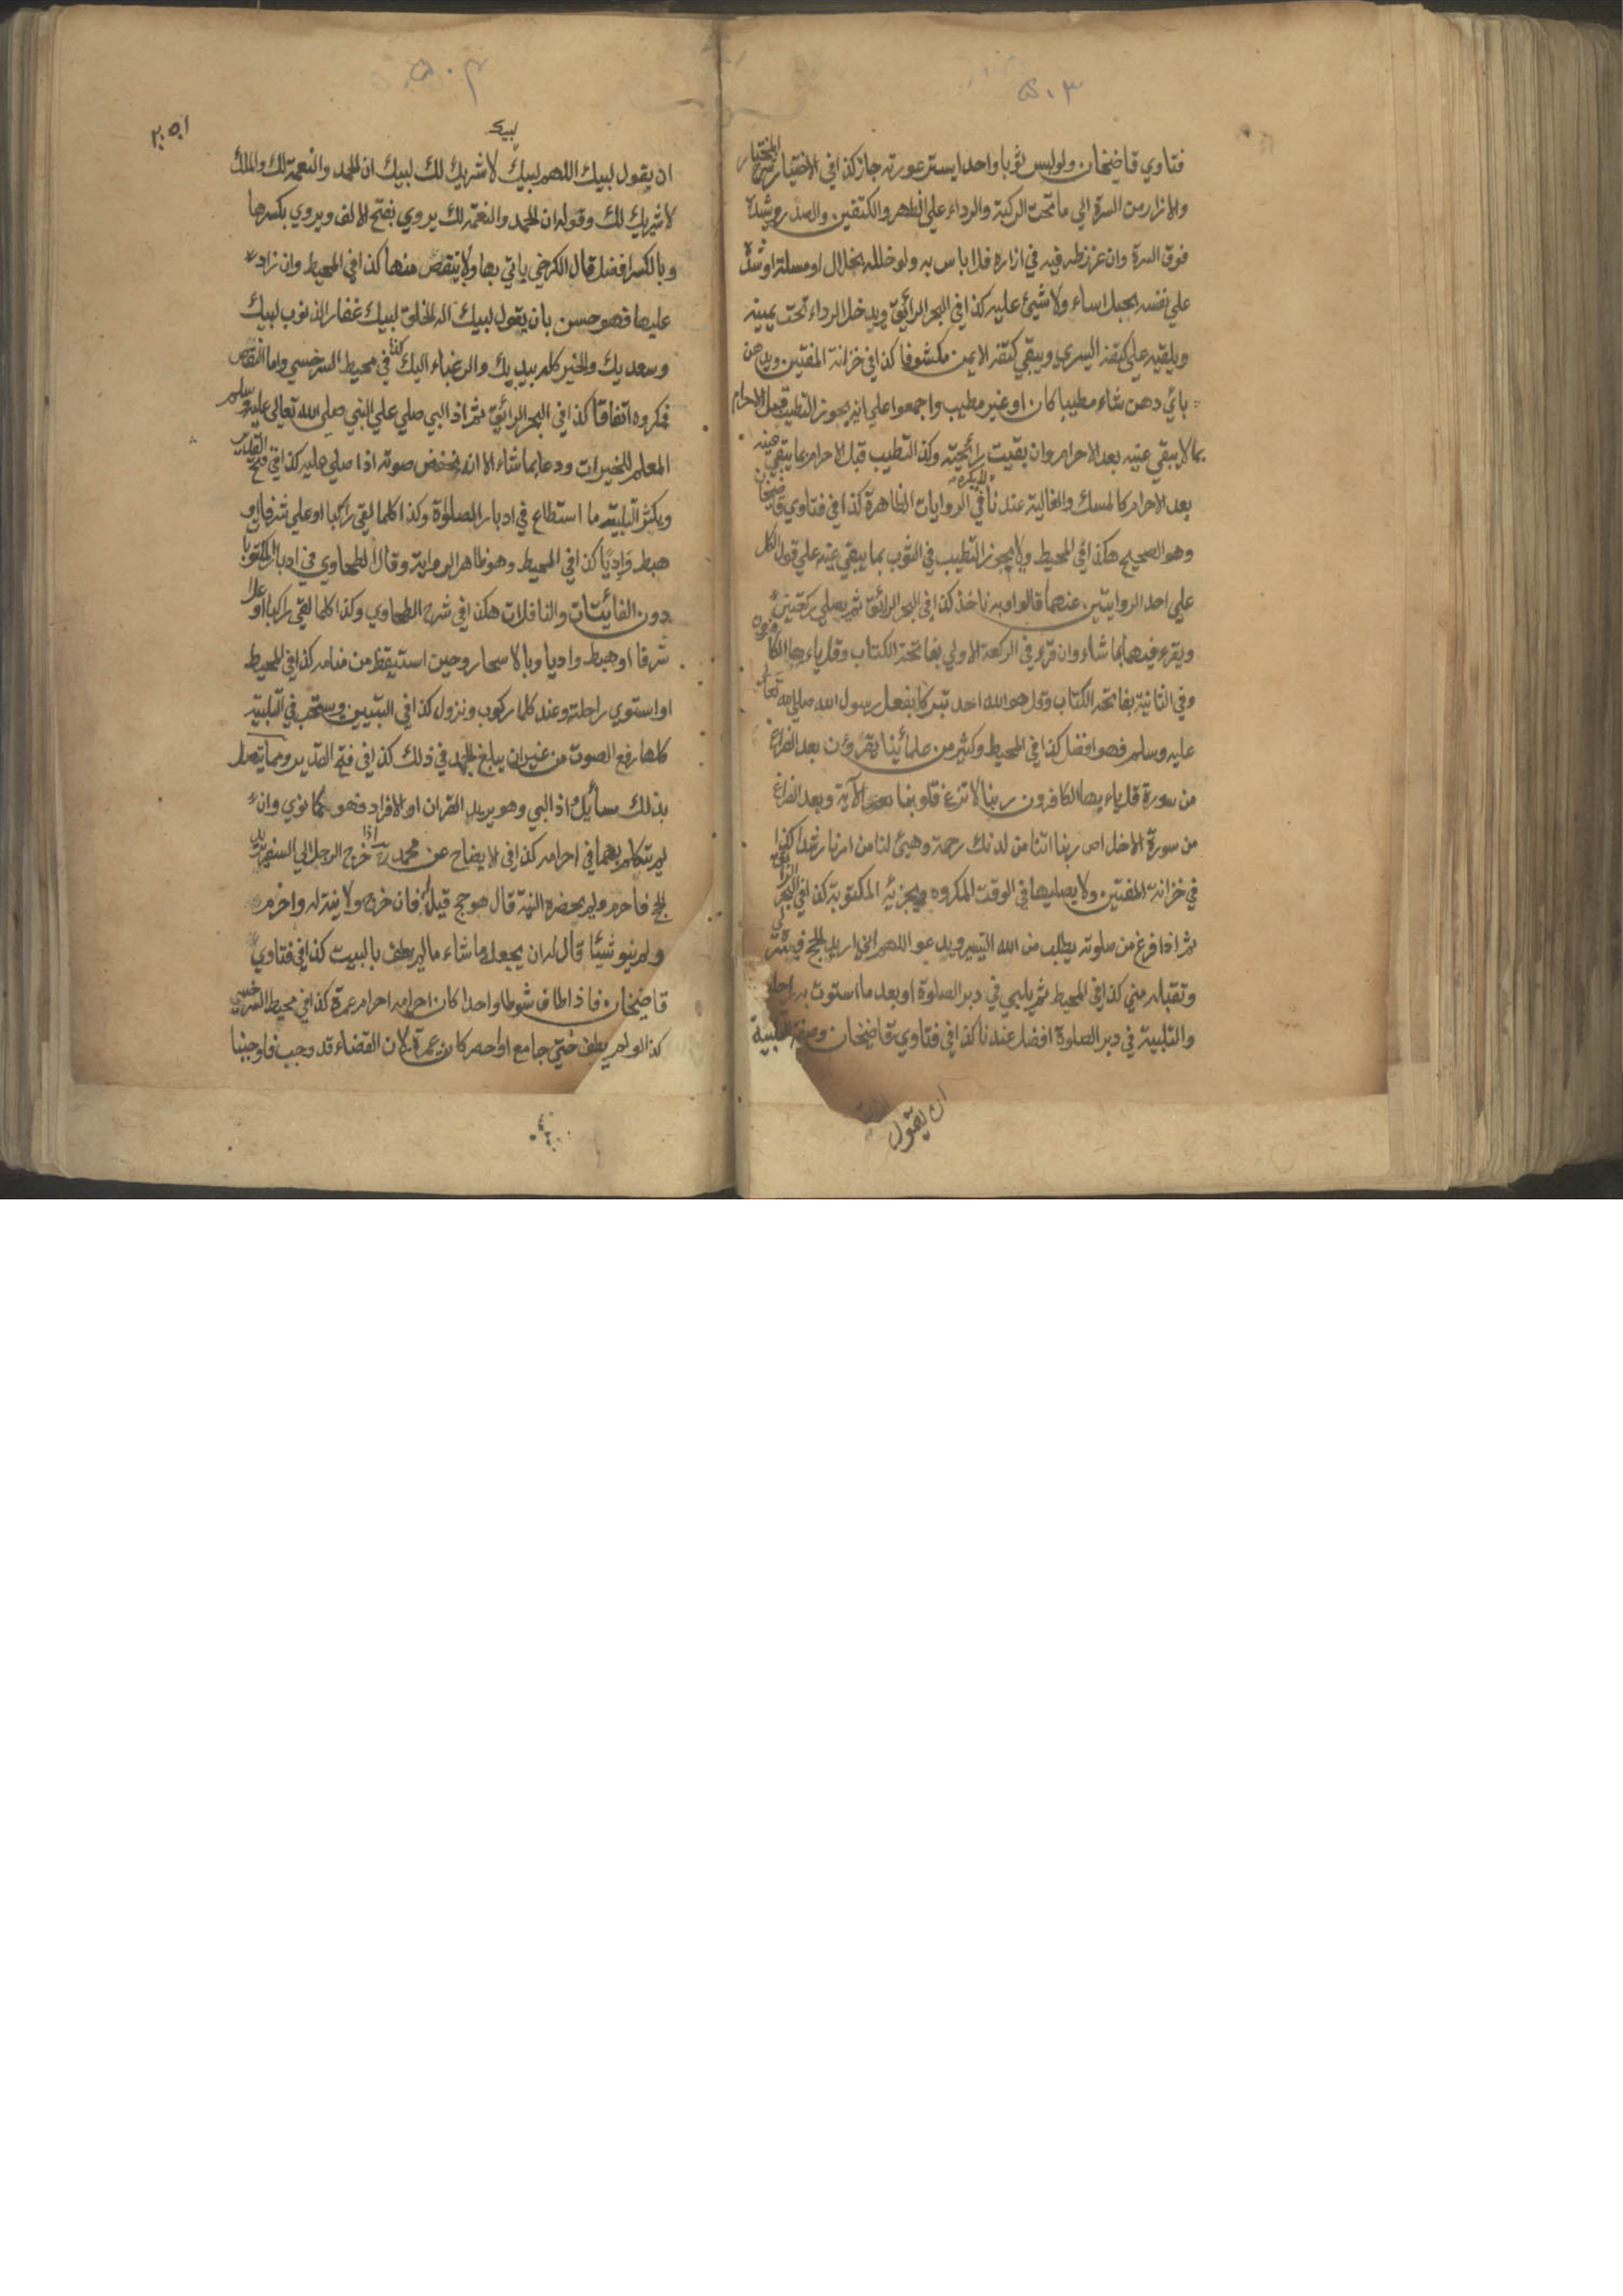 ٥٠٣
فتاوي قاضيخان ولو لبس ثوبا واحدا يستر عورته جاز كذا في الاختيار شرح المختار
والازار من السرة الي ما تحت الركبة والرداء علي الظهر والكتفين والصدر ويشده
فوق السرة وان غرز طرفيه في ازاره فلا باس به ولو خلله بخلال او مسلة او شده
علي نفسه بحبل اساء ولا شيئ عليه كذا في البحر الرائق ويدخل الرداء تحت يمينه
ويلقيه علي كتفه اليسري ويبقي كتفه الايمن مكشوفا كذا في خزانة المفتين ويدهن
بائي دهن شاء مطيبا كان او غير مطيب واجمعوا علي انه يجوز التطيب قبل الاحرام
بما لا يبقي عينه بعد الاحرام وان بقيت رائحيته وكذا التطيب قبل الاحرام بما يبقي عينه
بعد الاحرام كالمسك والغالية عندنا لا يكره في الروايات الظاهرة كذا في فتاوي قاضيخان
وهو الصحيح هكذا في المحيط ولا يجوز التطيب في الثوب بما يبقي عينه علي قول الكل
علي احد الروايتين عنهما قالوا وبه ناخذ كذا في البحر الرائق ثم يصلي ركعتين
ويقرء فيهما بما شاء وان قرء في الركعة الاولي بفاتحة الكتاب وقل ياءيها الكافرون
وفي الثانية بفاتحة الكتاب وقل هو الله احد تبركا بفعل رسول الله صلي الله تعالي
عليه وسلم فهو افضل كذا في المحيط وكثير من علمائينا يقرؤن بعد الفراغ
من سورة قل ياءيها الكافرون ربنا لا تزغ قلوبنا الآية وبعد الفراغ
من سورة الاخلاص ربنا اتنا من لدنك رحمة وهيئ لنا من امرنا رشدا كذا
في خزانة المفتين ولا يصليها في الوقت المكروه ويجزئيه المكتوبة كذا في البحر الرائق
ثم اذا فرغ من صلوته يطلب من الله التيسر ويدعو اللهم اني اريد الحج فيسره لي
وتقبله مني كذا في المحيط ثم يلبي في دبر الصلوة او بعد ما استوت به راحلته
والتلبية في دبر الصلوة افضل عندنا كذا في فتاوي قاضيخان وصفة التلبية
ان يقول
٥٠٤
لبيك
ان يقول لبيك اللهم لبيك لا شريك لك لبيك ان الحمد والنعمة لك والملك
لا شريك لك وقوله ان الحمد والنعمة لك يروي بفتح الالف ويروي بكسرها
وبالكسر افضل قال الكرخي ياتي بها ولا ينقص منها كذا في المحيط وان زاد
عليها فهو حسن بان يقول لبيك اله الخلق لبيك غفار الذنوب لبيك
وسعديك والخير كله بيديك والرغباء اليك كذا في محيط السرخسي واما النقاص
فمكروه اتفاقا كذا في البحر الرائق ثم اذا لبي صلي علي النبي صلي الله تعالي عليه وسلم
المعلم للخيرات ودعا بما شاء الا انه يخفض صوته اذا صلي عليه كذا في فتح القدير
ويكثر التلبية ما استطاع في ادبار الصلوة وكذا كلما لقي راكبا او علي شرفا او
هبط واديا كذا في المحيط وهو ظاهر الرواية وقال الطحاوي في ادبار المكتوبات
دون الفائيتات والنافلات هكذا في شرح الطحاوي وكذا كلما لقي راكبا او علا
شرفا او هبط واديا وبالاسحار وحين استيقظ من منامه كذا في المحيط
او استوي راحلته وعند كلما ركوب ونزول كذا في التبيين ويستحب في التلبية
كلها رفع الصوت من غير ان يبلغ الجهد في ذلك كذا في فتح القدير ومما يتصل
بذلك مسائيل اذا لبي وهو يريد القران او الافراد فهو كما نوي وان
لم يتكلم بهما في احرامه كذا في الايضاح عن محمد رح اذا خرج الرجل الي السفر يريد
الحج فاحرم ولم يحضره النية قال هو حج قيل فان خرج ولا نية له واحرم
ولم ينو شيئا قال له ان يجعله ما شاء ما لم يطف بالبيت كذا في فتاوي
قاضيخان فاذا طاف شوطا واحدا كان احرامه احرام عمرة كذا في محيط السرخسي
كذا لو لم يطف حتي جامع او احصر كان عمرة لان القضاء قد وجب فاوجبنا